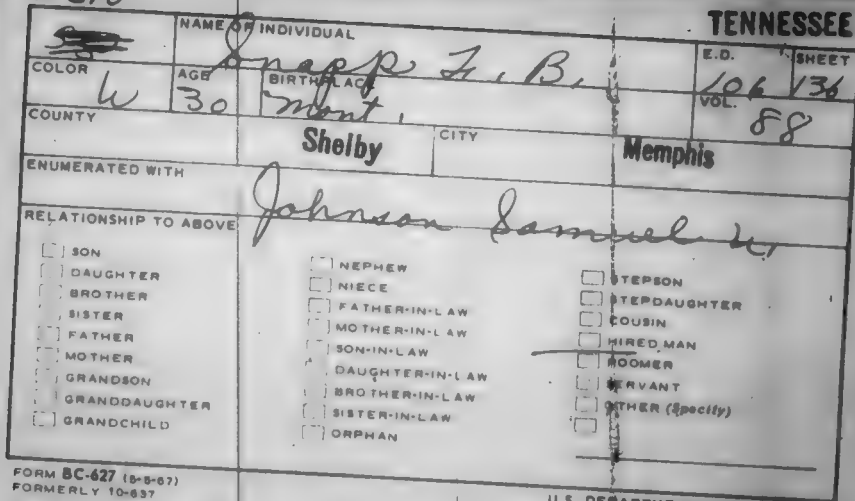 TENNESSEE
NAME OF INDIVIDUAL
Snapp F. B.
E.D.
106
SHEET
136
COLOR
W
AGE
30
BIRTHPLACE
Mont.
VOL.
88
COUNTY
Shelby
CITY
Memphis
ENUMERATED WITH
Johnson Samuel
RELATIONSHIP TO ABOVE
SON
DAUGHTER
BROTHER
SISTER
FATHER
MOTHER
GRANDSON
GRANDDAUGHTER
GRANDCHILD
NEPHEW
NIECE
FATHER-IN-LAW
MOTHER-IN-LAW
SON-IN-LAW
DAUGHTER-IN-LAW
BROTHER-IN-LAW
SISTER-IN-LAW
ORPHAN
STEPSON
STEPDAUGHTER
COUSIN
HIRED MAN
ROOMER
SERVANT
OTHER (Specify)
FORM BC-627 (5-5-67)
FORMERLY 10-637
U.S.